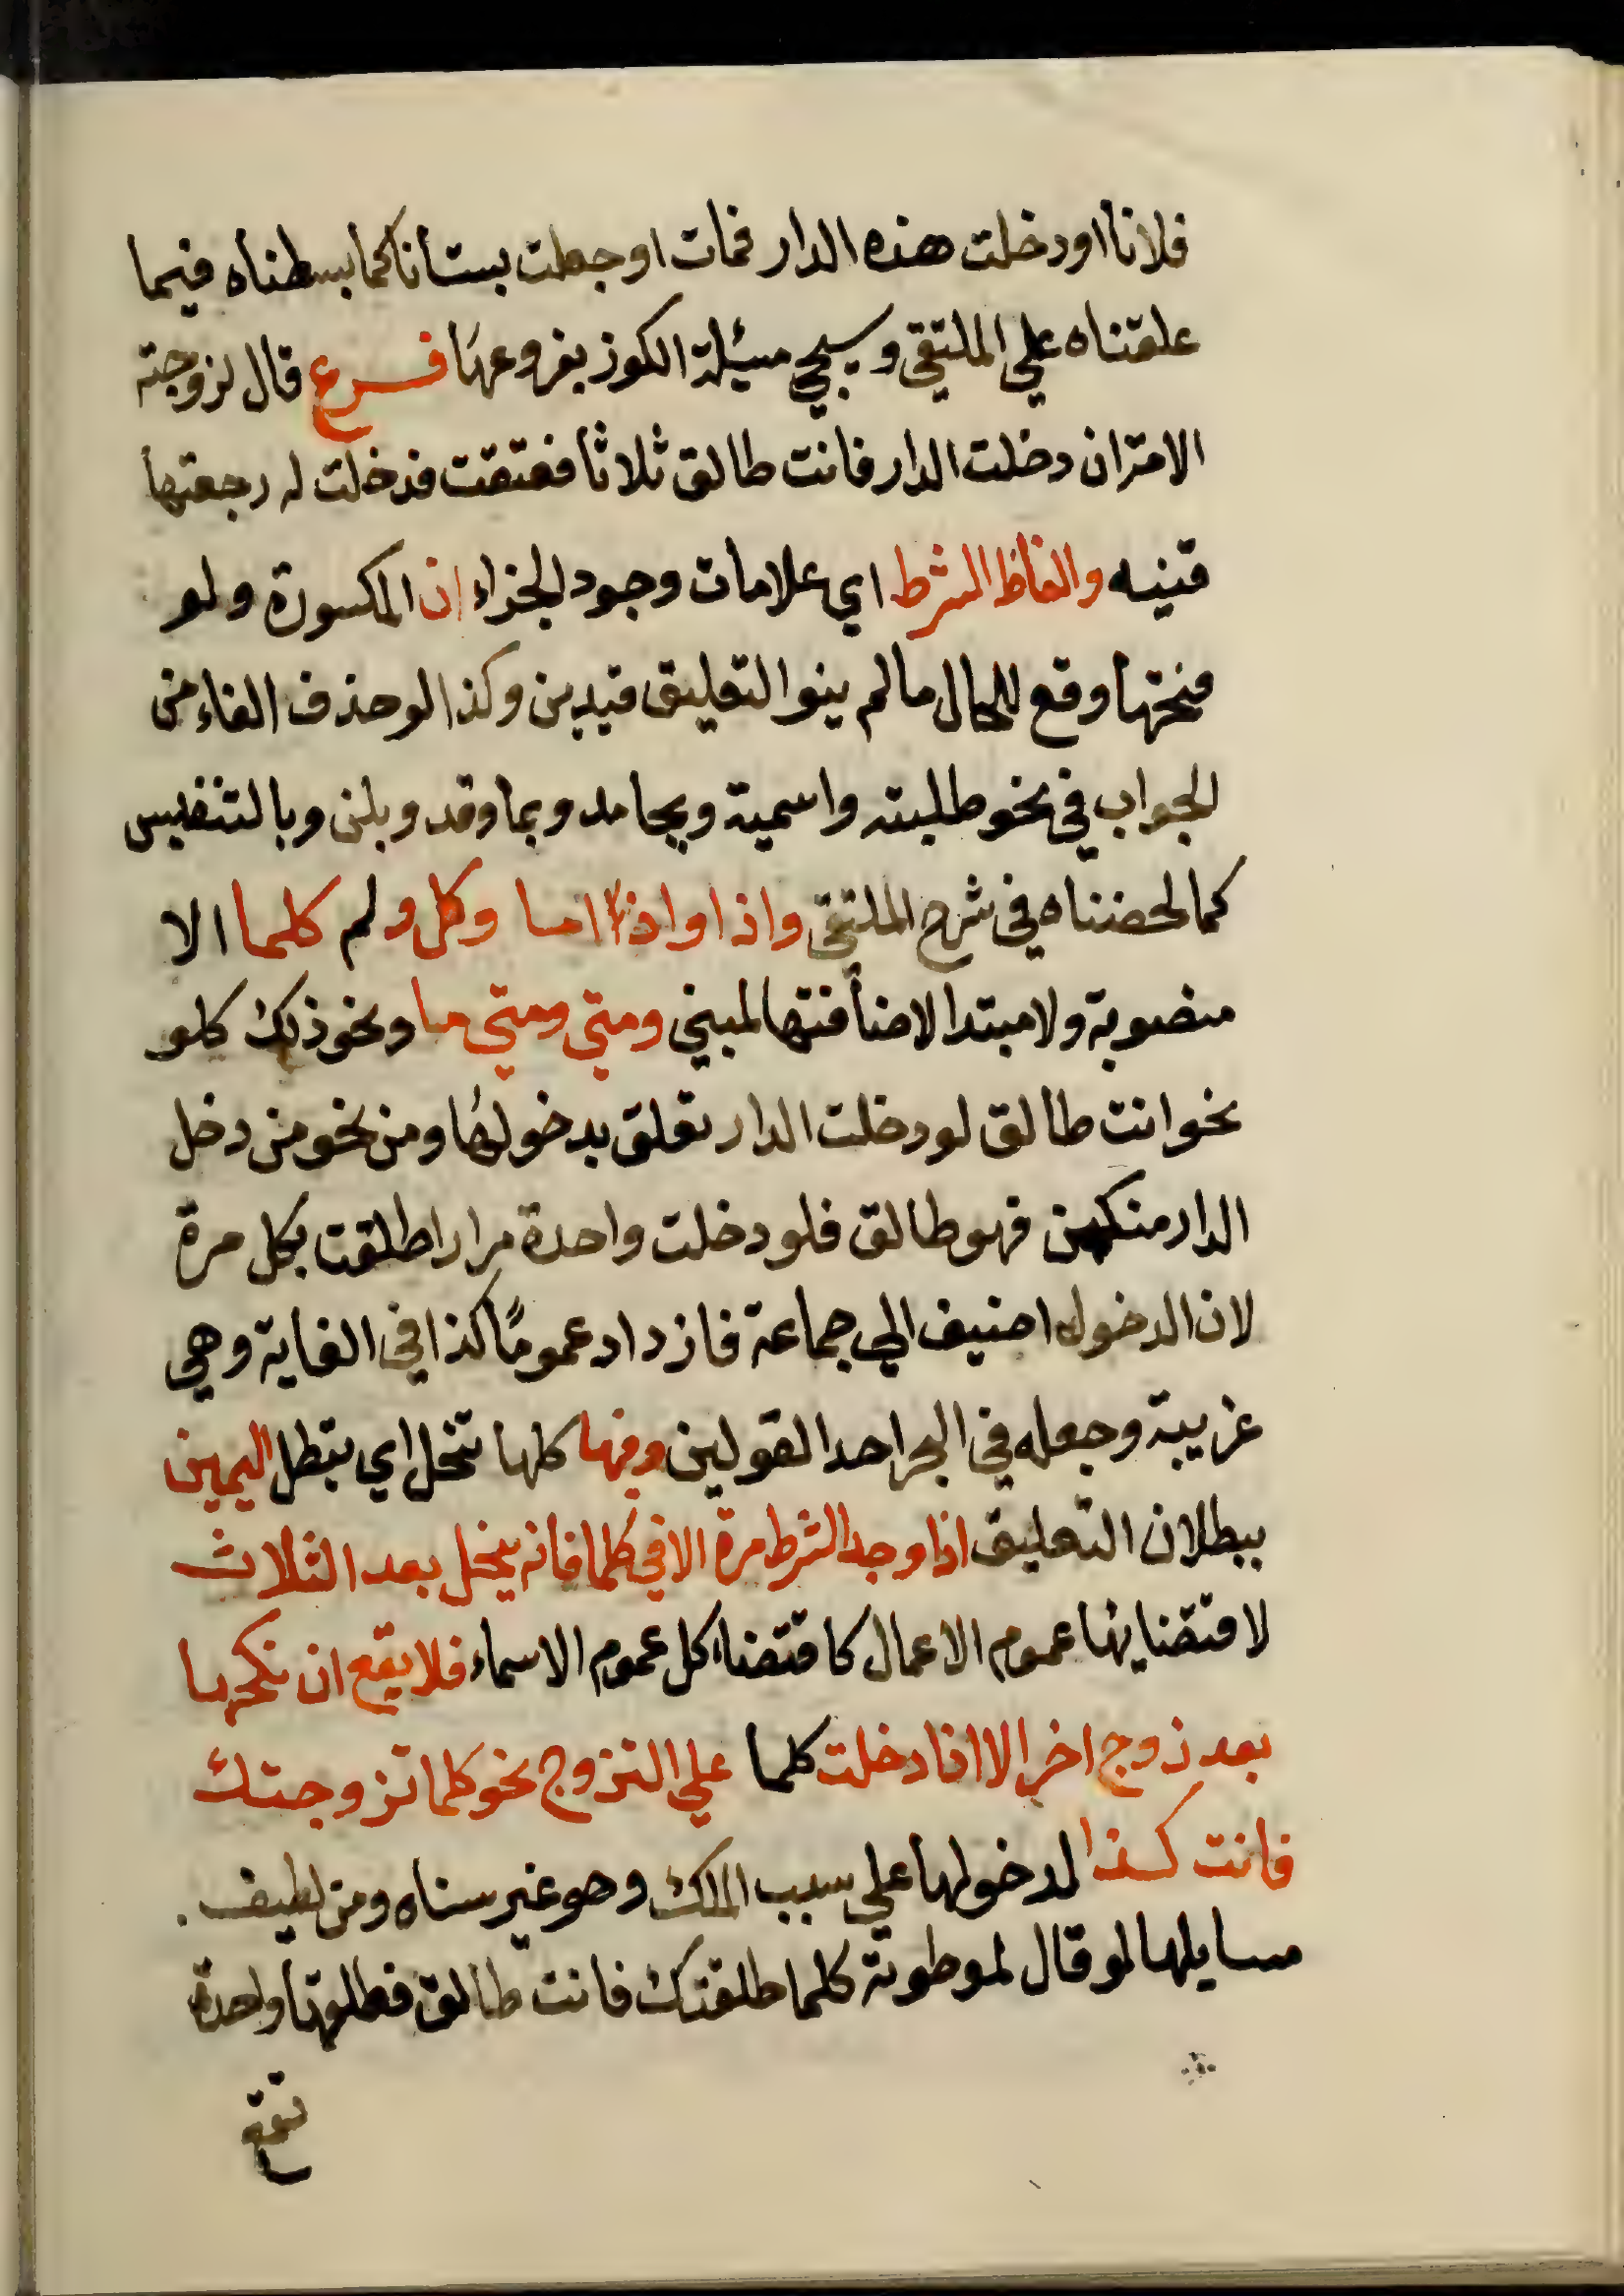 فلانا اودخلت هذه الدار فمات اوجعلت بستانا كما بسطناه فيما
علقناه علي الملتقي وسيجي مسئلة الكوز بفروعها فرع قال لزوجته
الامة ان دخلت الدار فانت طالق ثلاثا فعتقت فدخلت له رجعتها
قنيه والفاظ الشرط اي علامات وجود الجزاء ان المكسورة ولو
فتحها وقع للحال مالم ينو التعليق فيدين وكذا لو حذف الفاء من
الجواب في نحو طلبيته واسمية وبجامد وبما وقد وبلن وبالتنفيس
كما لخصناه في شرح الملتقي واذا واذا ما وكل ولم كلما الا
منصوبة ولا مبتدا لاضافتها لمبني ومتي ومتي ما ونحو ذلك كلو
نحو انت طالق لو دخلت الدار تعلق بدخولها ومن نحو من دخل
الدار منكن فهو طالق فلو دخلت واحدة مرارا طلقت بكل مرة
لان الدخول اضيف الي جماعة فازداد عموما كذا في الغاية وهي
غريبة وجعله في البحر احد القولين وفيها كلها تنحل اي تبطل اليمين
ببطلان التعليق اذا وجد الشرط مرة الا في كلما فانه ينحل بعد الثلاث
لاقتضايها عموم الاعمال كاقتضاء كل عموم الاسماء فلا يقع ان نكحها
بعد زوج اخر الا اذا دخلت كلما علي التزوج نحو كلما تزوجتك
فانت كذا لدخولها علي سبب الملك وهو غير متناه ومن لطيف
مسايلها لو قال لموطوته كلما طلقتك فانت طالق فطلقها واحدة
تقع